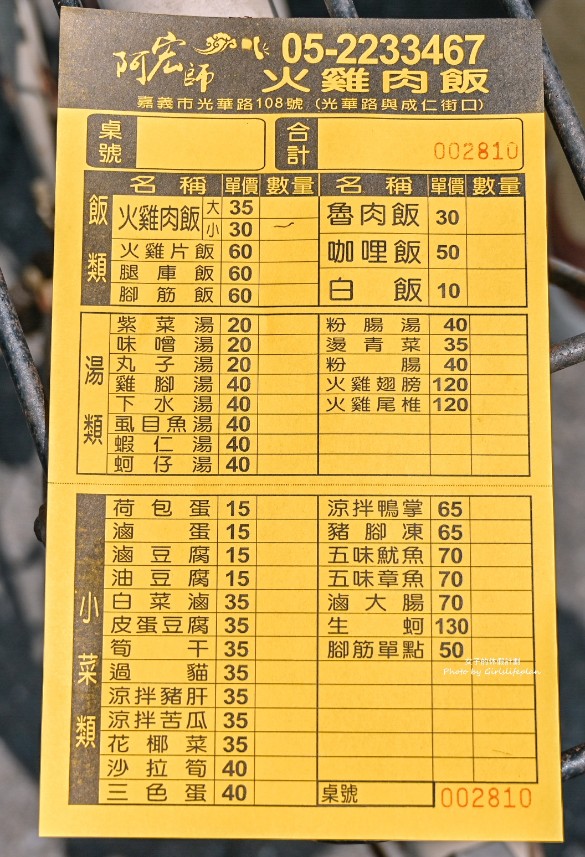 阿宏師 05-2233467
火雞肉飯
嘉義市光華路108號 (光華路與成仁街口)
桌號 合計 002810
飯類
名稱 單價 數量 名稱 單價 數量
火雞肉飯 大 35
小 30
火雞片飯 60
腿庫飯 60
腳筋飯 60
魯肉飯 30
咖哩飯 50
白飯 10
湯類
紫菜湯 20
味噌湯 20
丸子湯 20
雞腳湯 40
下水湯 40
虱目魚湯 40
蝦仁湯 40
蚵仔湯 40
粉腸湯 40
燙青菜 35
粉腸 40
火雞翅膀 120
火雞尾椎 120
小菜類
荷包蛋 15
滷蛋 15
滷豆腐 15
油豆腐 15
白菜滷 35
皮蛋豆腐 35
筍干 35
過貓 35
涼拌豬肝 35
涼拌苦瓜 35
花椰菜 35
沙拉筍 40
三色蛋 40
涼拌鴨掌 65
豬腳凍 65
五味魷魚 70
五味章魚 70
滷大腸 70
生蚵 130
腳筋單點 50
桌號 002810
女子的休假計劃
Photo by Girlslifeplan